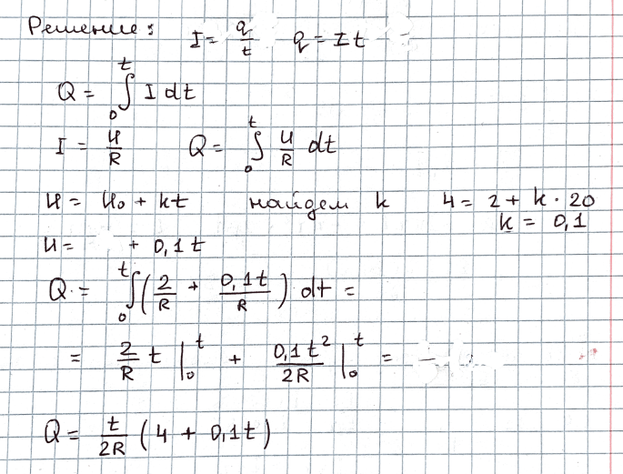 Решение: I = q/t q = It
Q = ∫₀ᵗ I dt
I = U/R Q = ∫₀ᵗ U/R dt
U = U₀ + kt найдем k 4 = 2 + k · 20
k = 0,1
U = + 0,1t
Q = ∫₀ᵗ (2/R + 0,1t/R) dt =
= 2/R t |₀ᵗ + 0,1t²/2R |₀ᵗ =
Q = t/2R (4 + 0,1t)